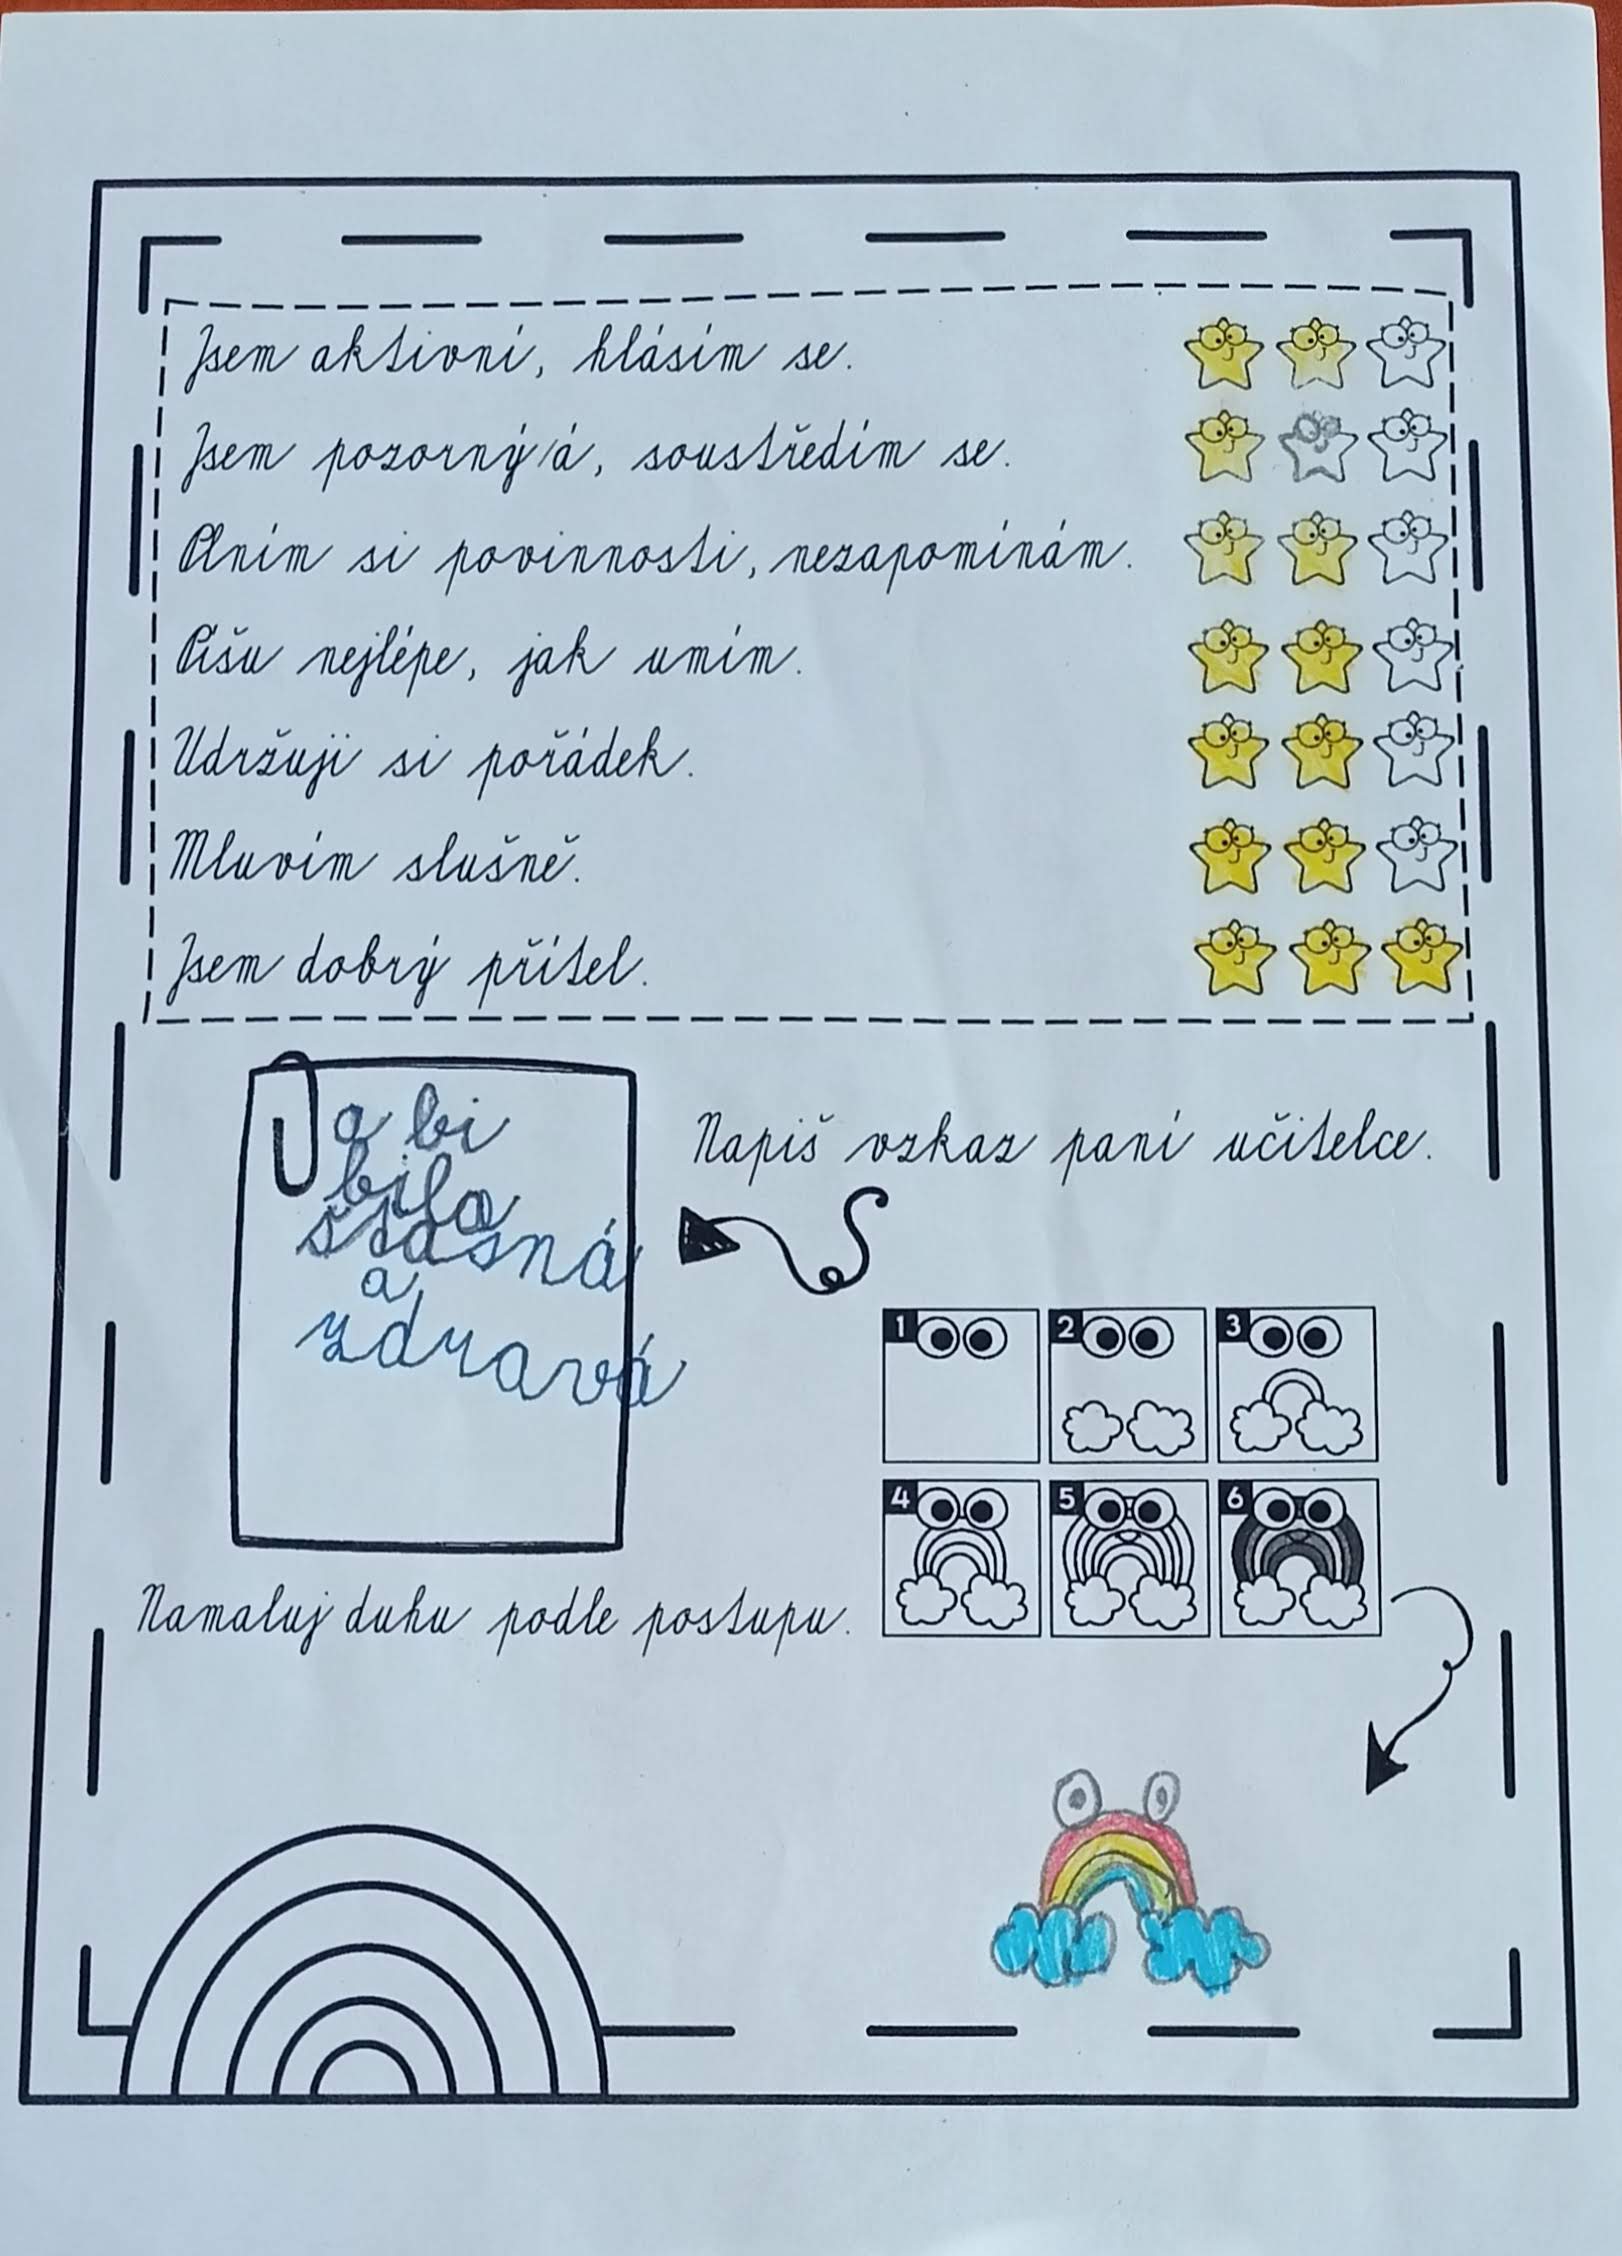 Jsem aktivní, hlásím se.
Jsem pozorný/á, soustředím se.
Plním si povinnosti, nezapomínám.
Píšu nejlépe, jak umím.
Udržuji si pořádek.
Mluvím slušně.
Jsem dobrý přítel.
a bi
bila
štasná
a
zdravá
Napiš vzkaz paní učitelce.
1 2 3
4 5 6
Namaluj duhu podle postupu.